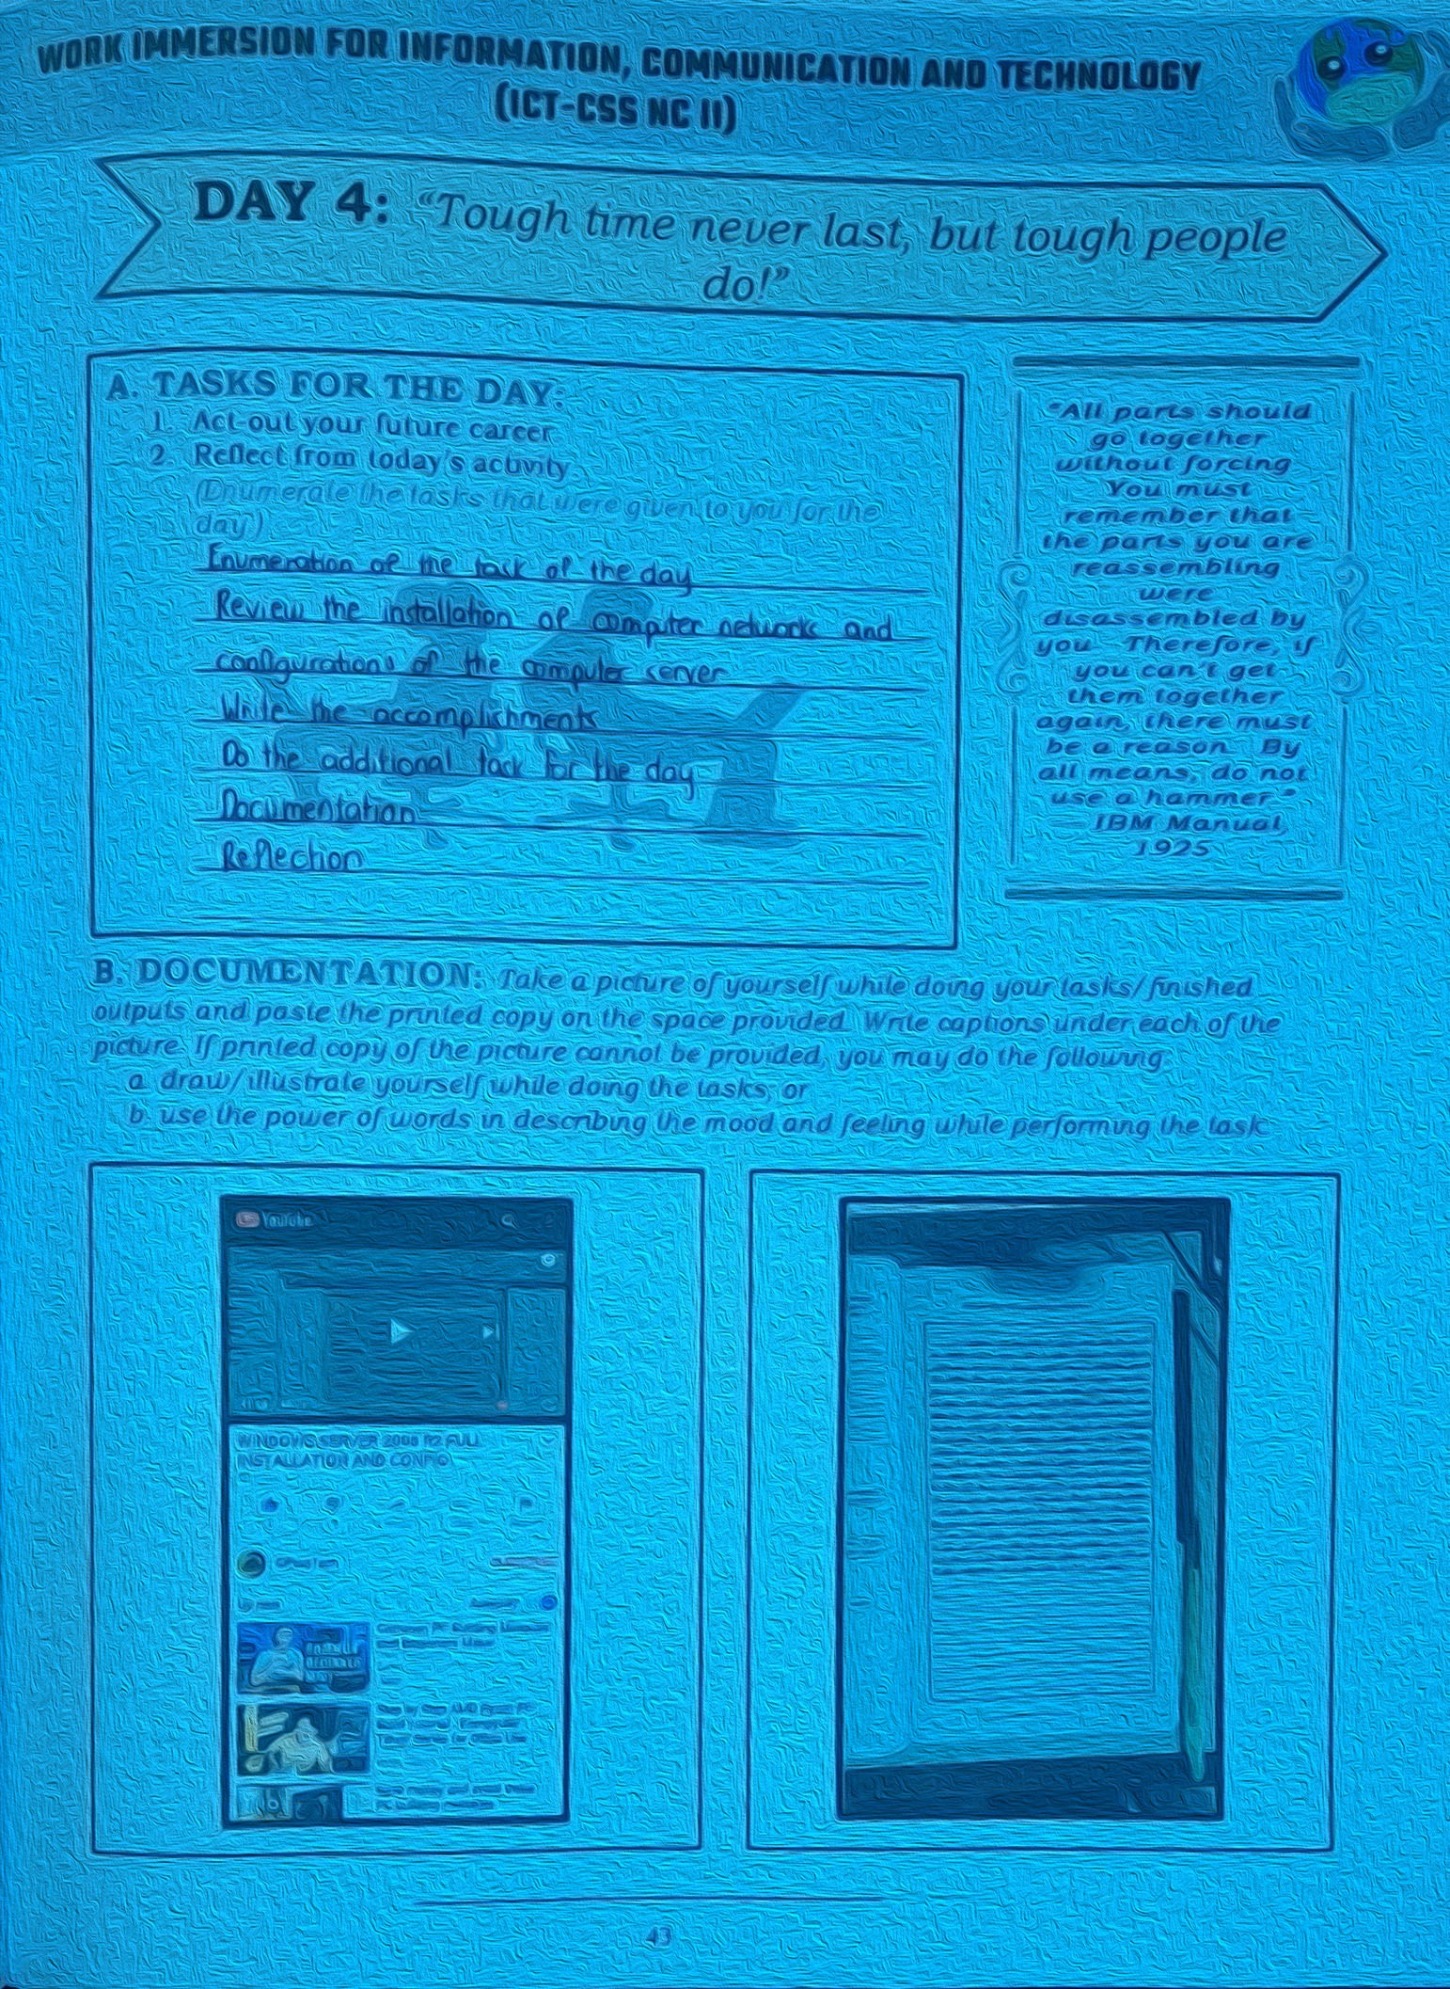 WORK IMMERSION FOR INFORMATION, COMMUNICATION AND TECHNOLOGY
(ICT-CSS NC II)
DAY 4: “Tough time never last, but tough people
do!”
A. TASKS FOR THE DAY:
1. Act-out your future career
2. Reflect from today's activity
(Enumerate the tasks that were given to you for the
day)
Enumeration of the task of the day
Review the installation of computer networks and
configurations of the computer server
Write the accomplishments
Do the additional task for the day
Documentation
Reflection
“All parts should
go together
without forcing
You must
remember that
the parts you are
reassembling
were
disassembled by
you. Therefore, if
you can't get
them together
again, there must
be a reason. By
all means, do not
use a hammer.”
IBM Manual,
1925
B. DOCUMENTATION: Take a picture of yourself while doing your tasks/finished
outputs and paste the printed copy on the space provided. Write captions under each of the
picture. If printed copy of the picture cannot be provided, you may do the following:
a. draw/illustrate yourself while doing the tasks; or
b. use the power of words in describing the mood and feeling while performing the task
YouTube
WINDOWS SERVER 2008 R2 FULL
INSTALLATION AND CONFIG
Up next
43